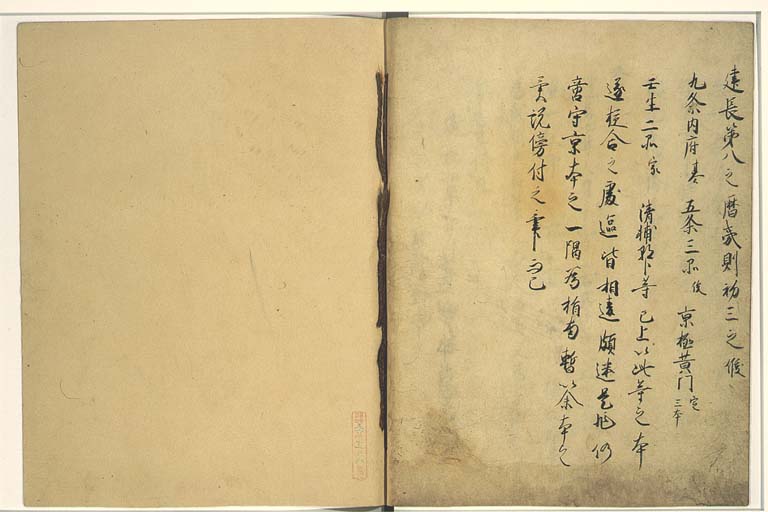 建長第八之暦夷則初三之候
九条内府基 五条三品俊 京極黄門定三本
壬生二品家 清輔朝臣等 已上以此等之本
遂校合之處區皆相違頗迷是非仍
啻守京本之一隅為指南暫以余本之
異説傍付之事而已